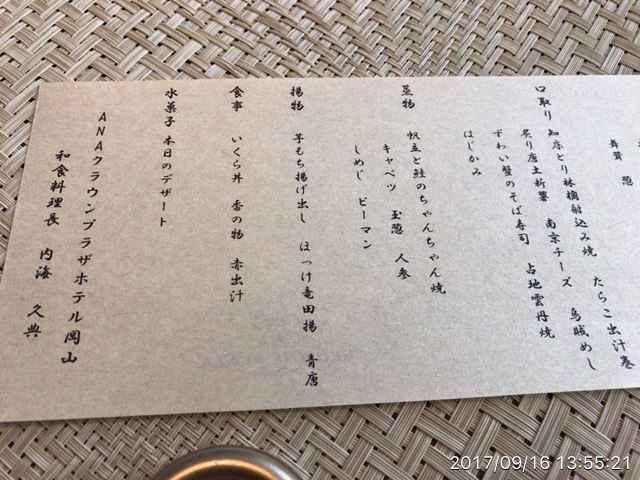 舞茸 葱
口取り 知床とり林檎射込み焼 たらこ出汁巻
炙り唐土祈薯 南京チーズ 烏賊めし
ずわい蟹のそば寿司 占地雲丹焼
はじかみ
蒸物 帆立と鮭のちゃんちゃん焼
キャベツ 玉葱 人参
しめじ ピーマン
揚物 芋もち揚げ出し ほっけ竜田揚 青唐
食事 いくら丼 香の物 赤出汁
水菓子 本日のデザート
ANAクラウンプラザホテル岡山
和食料理長 内海 久典
2017/09/16 13:55:21